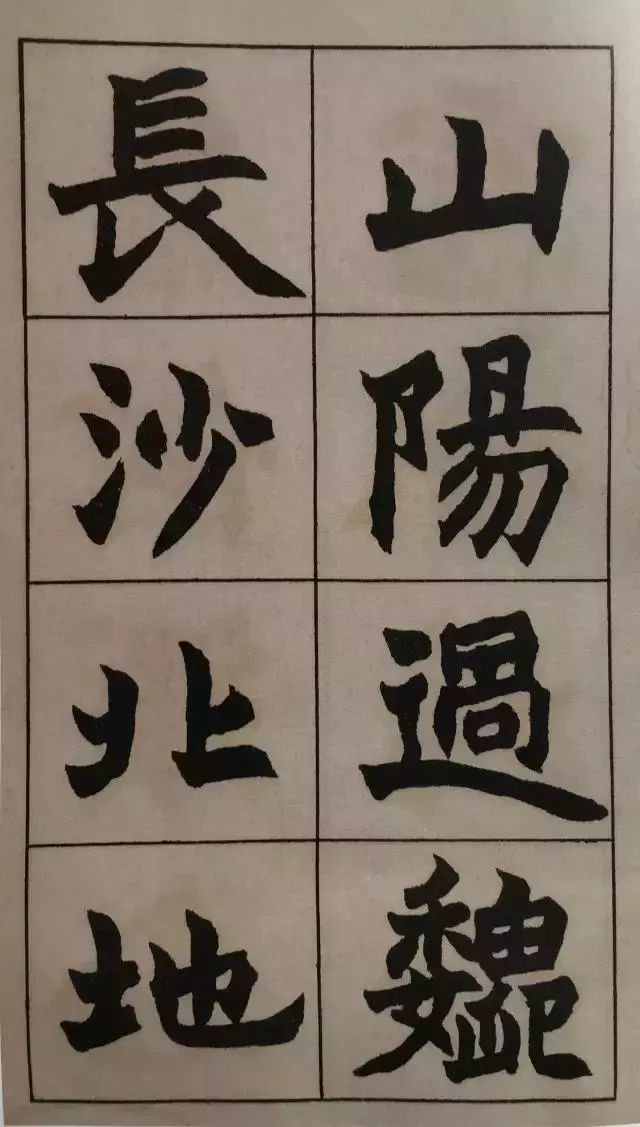 山陽過魏
長沙北地